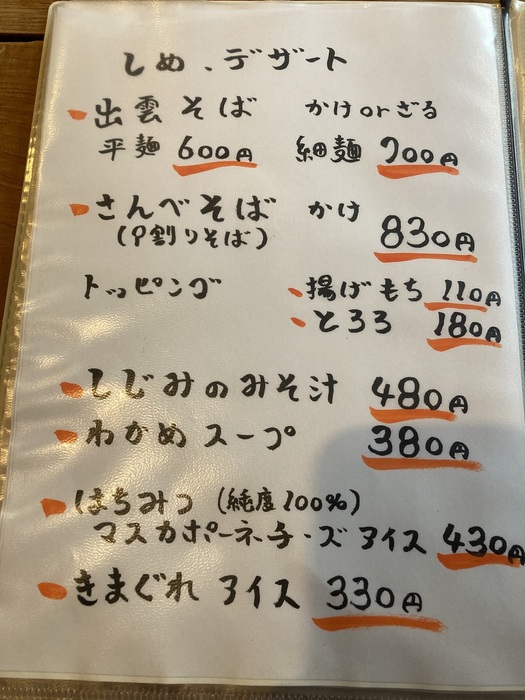 しめ、デザート
出雲そば かけorざる
平麺 600円 細麺 700円
さんべそば かけ
(9割りそば) 830円
トッピング 揚げもち 110円
とろろ 180円
しじみのみそ汁 480円
わかめスープ 380円
はちみつ (純度100%)
マスカポーネチーズ アイス 430円
きまぐれ アイス 330円